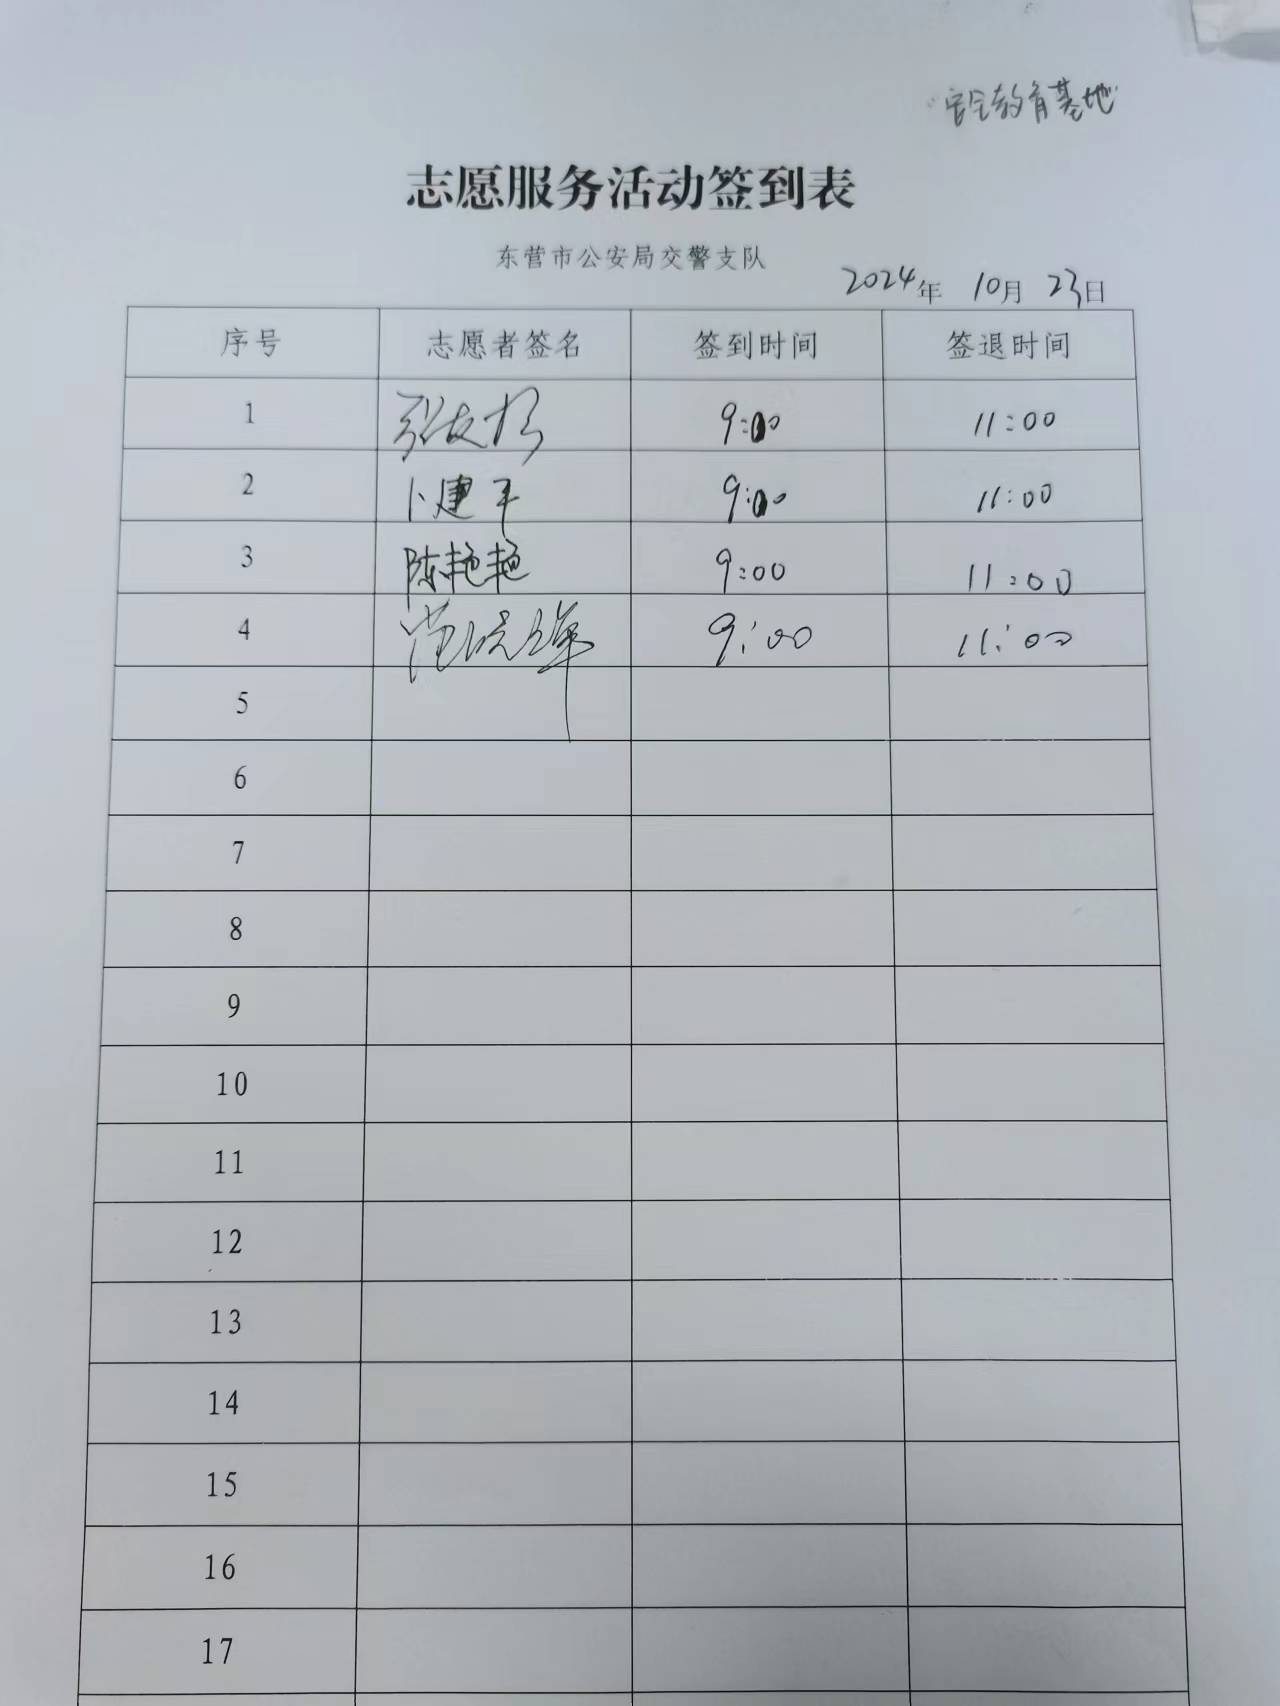 安全教育基地
志愿服务活动签到表
东营市公安局交警支队
2024年 10月 23日
序号 志愿者签名 签到时间 签退时间
1 张友 9:00 11:00
2 卜建平 9:00 11:00
3 陈艳艳 9:00 11:00
4 9:00 11:00
5
6
7
8
9
10
11
12
13
14
15
16
17